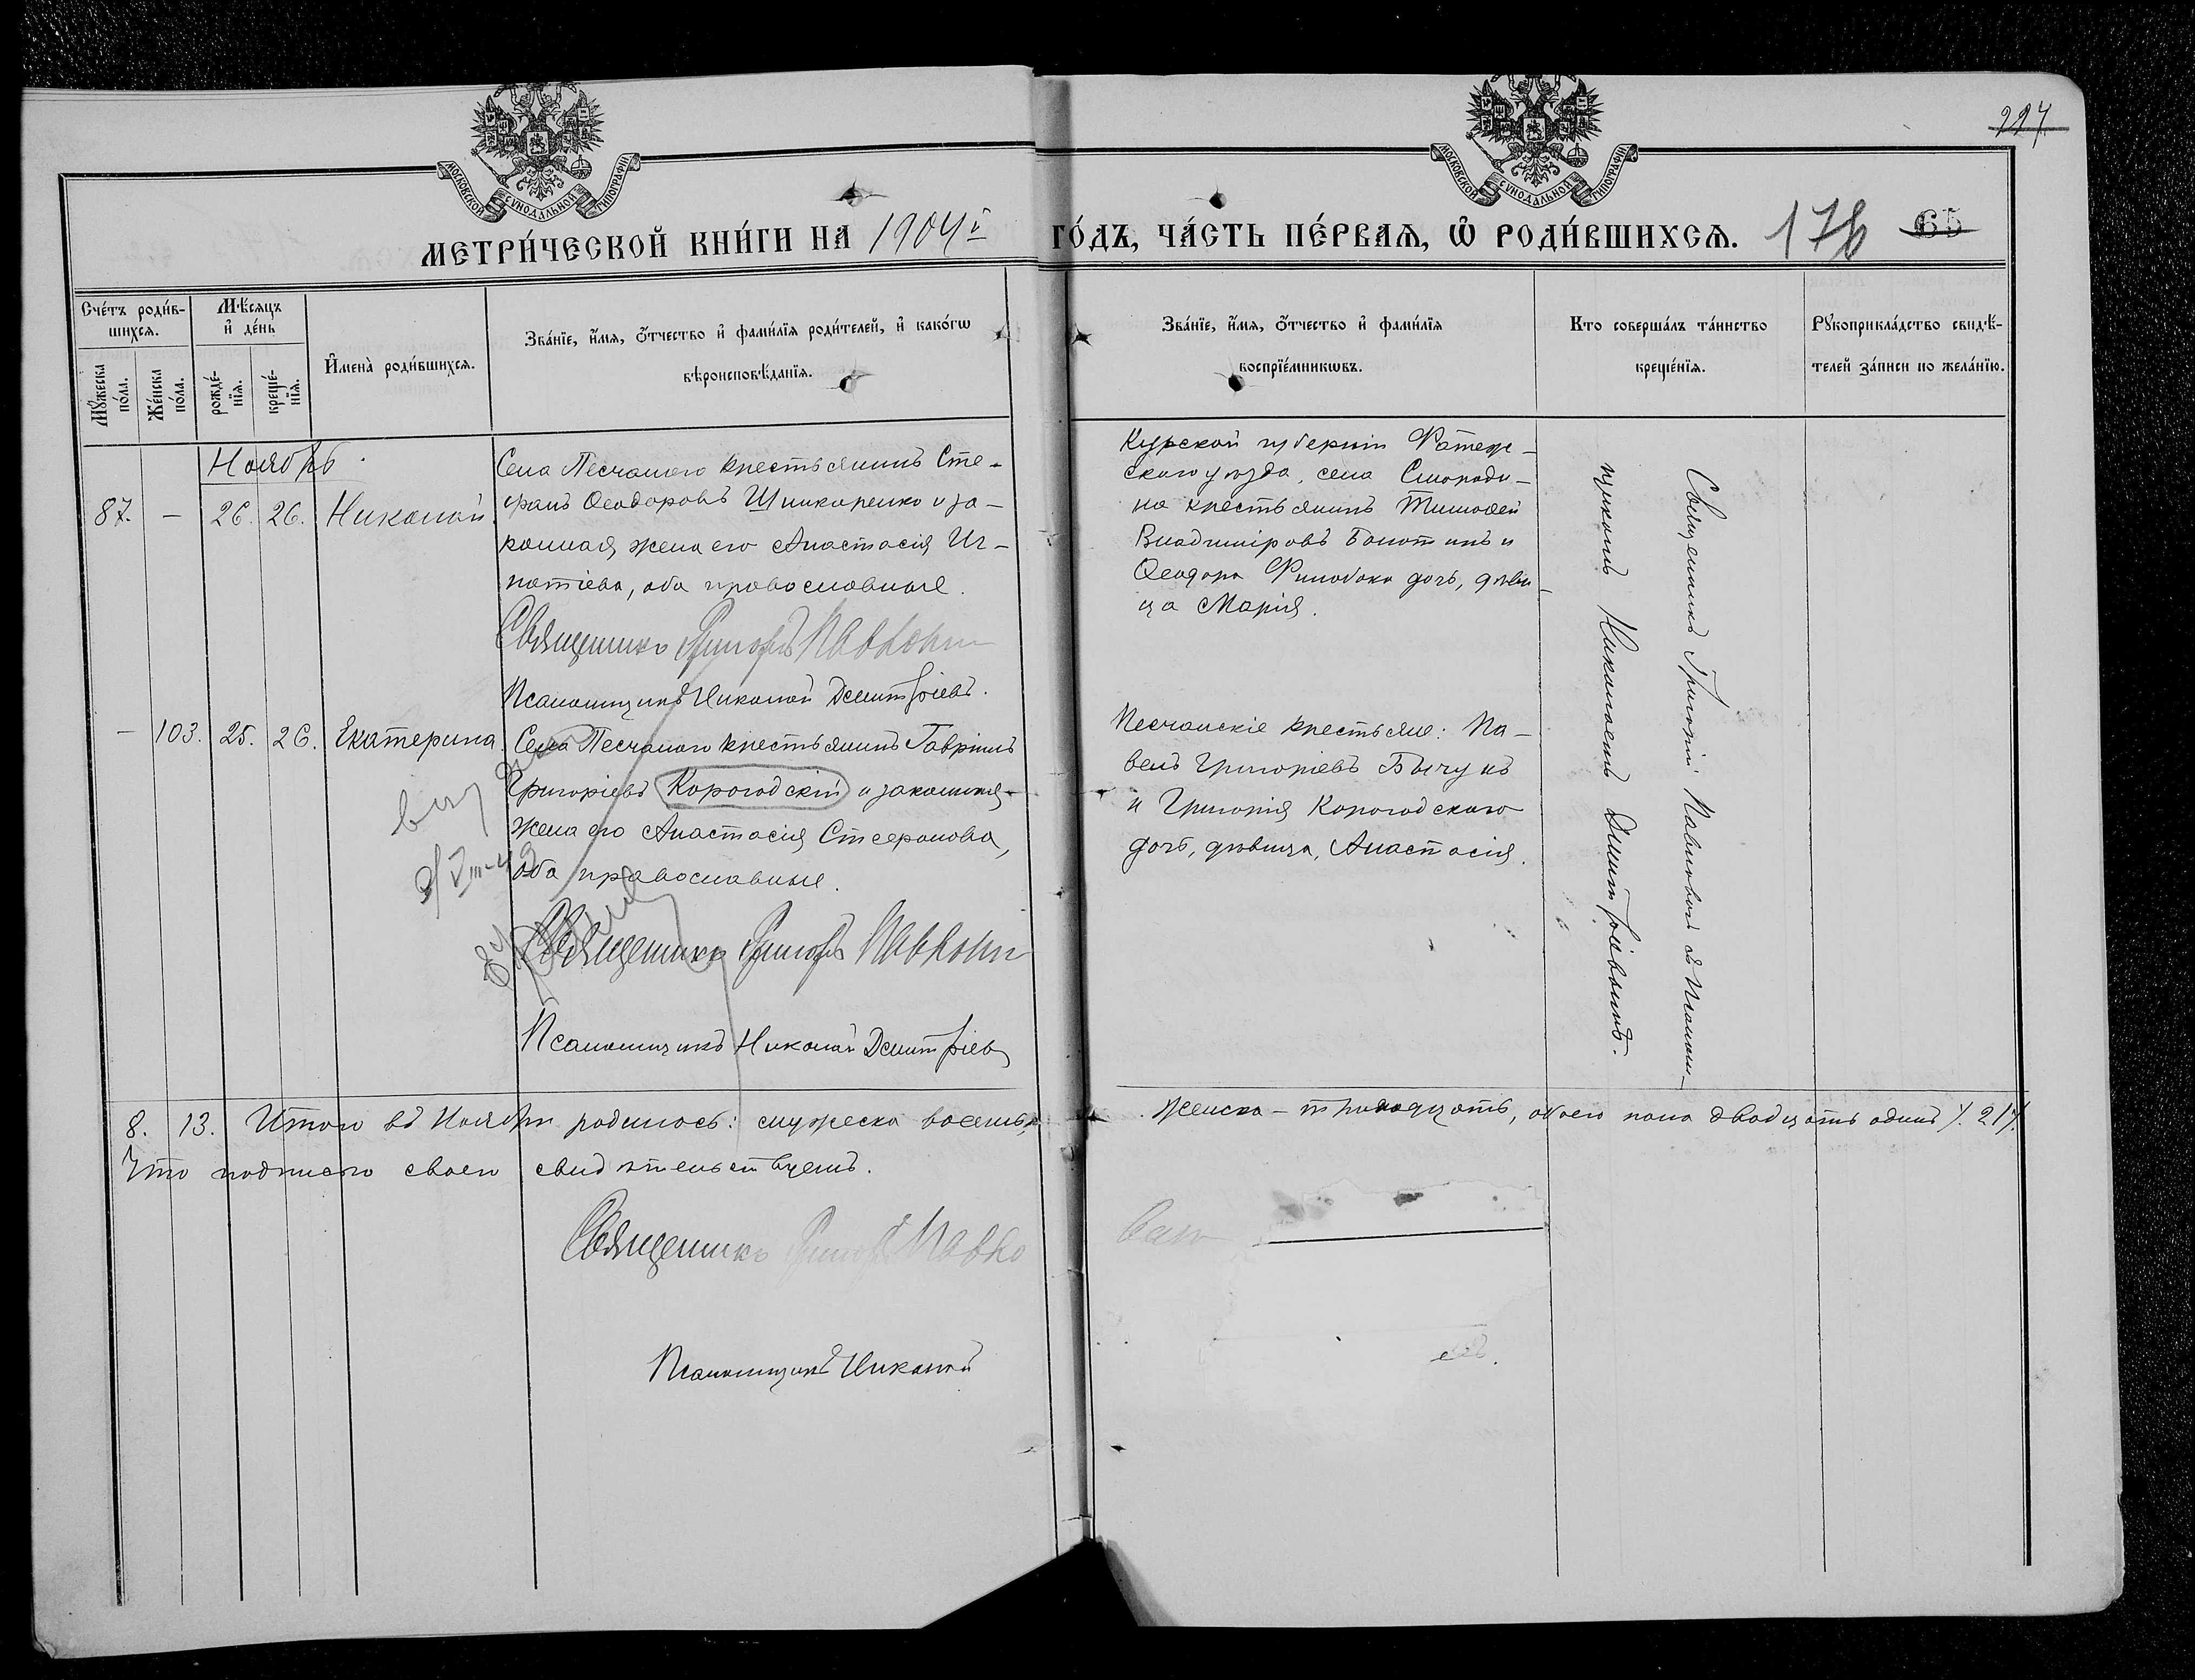 МОСКОВСКОЙ СѴНОДАЛЬНОЙ ТИПОГРАФІИ
МОСКОВСКОЙ СѴНОДАЛЬНОЙ ТИПОГРАФІИ
227
МЕТРИ́ЧЕСКОЙ КНИ́ГИ НА 1904й ГО́ДЪ, ЧА́СТЬ ПЕ́РВАѦ, Ѡ҆ РОДИ́ВШИХСѦ. 176 65
Сче́тъ роди́в-
шихсѧ.
Мꙋ́жеска по́ла.
Же́нска по́ла.
Мѣ́сѧцъ и҆ де́нь
рожде́-нїѧ.
креще́-нїѧ.
И҆мена̀ роди́вшихсѧ.
Зва́нїе, и҆́мѧ, ѻ҆́тчество и҆ фами́лїѧ роди́телей, и҆ како́гѡ
вѣроисповѣ́данїѧ.
Зва́нїе, и҆́мѧ, ѻ҆́тчество и҆ фами́лїѧ
воспрїе́мникѡвъ.
Кто соверша́лъ та́инство
креще́нїѧ.
Рꙋкоприкла́дство свидѣ́-
телей за́писи по жела́нїю.
Ноябрь
87. – 26. 26. Николай
Села Песчанаго крестьянинъ Сте-
фанъ Ѳеодоровъ Шинкаренко и за-
конная жена его Анастасія Иг-
натіева, оба православные.
Священникъ Григорій Павловъ
Псаломщикъ Николай Дмитріевъ.
Курской губерніи Фатеж-
скаго уѣзда, села Смороди-
на крестьянинъ Тимоѳей
Владиміровъ Болотинъ и
Ѳеодора дочь, дѣви-
ца Марія.
– 103. 25. 26. Екатерина
Села Песчанаго крестьянинъ Гавріилъ
Григоріевъ Корогодскій и законная
жена его Анастасія Стефанова,
оба православные.
Священникъ Григорій Павловъ
Псаломщикъ Николай Дмитріевъ
Песчанскіе крестьяне: Па-
велъ Григоріевъ Бычукъ
и Григорія Корогодскаго
дочь, дѣвица, Анастасія.
Священникъ Григорій Павловъ съ Псалом-
щикомъ Николаемъ Дмитріевымъ.
8. 13. Итого въ Ноябрѣ родилось: мужеска восемь, женска – тринадцать, обоего пола двадцать одинъ /. 21 /.
Что подписью своею свидѣтельствуемъ.
Священникъ Григорій Павло
Псаломщикъ Николай
евъ.